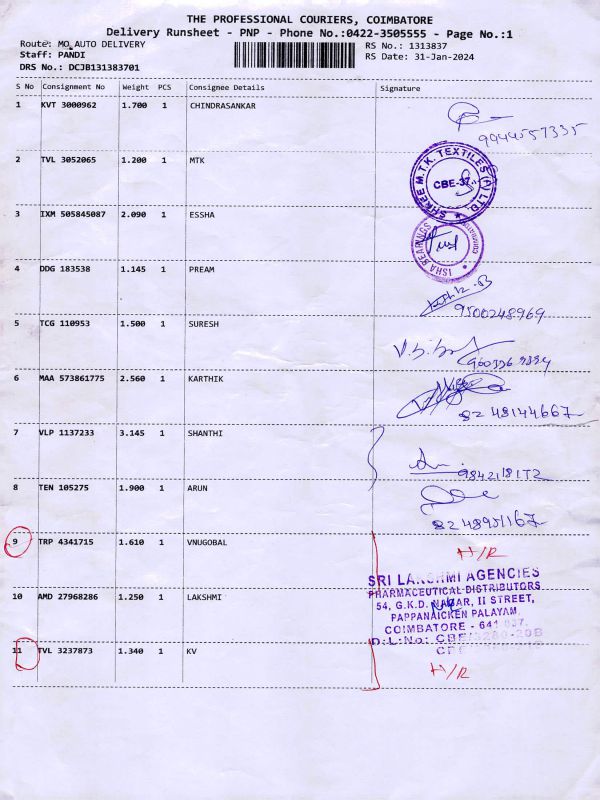 THE PROFESSIONAL COURIERS, COIMBATORE
Delivery Runsheet - PNP - Phone No.:0422-3505555 - Page No.:1
Route: MO_AUTO DELIVERY RS No.: 1313837
Staff: PANDI RS Date: 31-Jan-2024
DRS No.: DCJB131383701
S No Consignment No Weight PCS Consignee Details Signature
1 KVT 3000962 1.700 1 CHINDRASANKAR
9944557335
2 TVL 3052065 1.200 1 MTK
SHREE M.T.K. TEXTILES (P) LTD
CBE-37
3 IXM 505845087 2.090 1 ESSHA
ISHA BEARINGS CORPORATION
4 DDG 183538 1.145 1 PREAM
9500248969
5 TCG 110953 1.500 1 SURESH
6 MAA 573861775 2.560 1 KARTHIK
82 48144667
7 VLP 1137233 3.145 1 SHANTHI
8 TEN 105275 1.900 1 ARUN
9 TRP 4341715 1.610 1 VNUGOBAL
H/R
SRI LAKSHMI AGENCIES
PHARMACEUTICAL DISTRIBUTORS
10 AMD 27968286 1.250 1 LAKSHMI
54, G.K.D. NAGAR, II STREET,
PAPPANAICKEN PALAYAM
COIMBATORE - 641 037.
D.L.No: CBE
11 TVL 3237873 1.340 1 KV
H/R